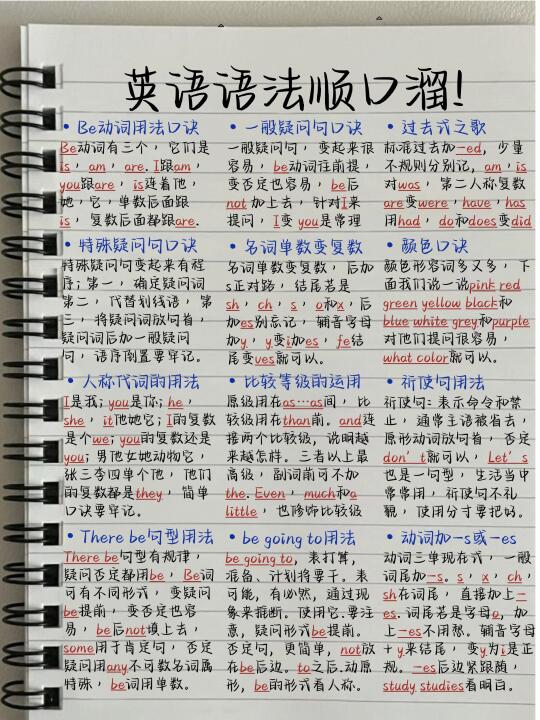 英语语法顺口溜!
• Be动词用法口诀
Be动词有三个，它们是
is，am，are. I跟am，
you跟are，is连着他，
她，它，单数后面跟
is，复数后面都跟are.
• 一般疑问句口诀
一般疑问句，变起来很
容易，be动词往前提，
变否定也容易，be后
not 加上去，针对I来
提问，I变 you是常理
• 过去式之歌
标准过去加-ed，少量
不规则分别记，am，is
对was，第二人称复数
are变were，have，has
用had，do和does变did
• 特殊疑问句口诀
特殊疑问句变起来有程
序；第一，确定疑问词
第二，代替划线语，第
三，将疑问词放句首，
疑问词后加一般疑问
句，语序倒置要牢记。
• 名词单数变复数
名词单数变复数，后加
s正对路，结尾若是
sh，ch，s，o和x，后
加es别忘记，辅音字母
加y，y变i加es，fe结
尾变ves就可以。
• 颜色口诀
颜色形容词多又多，下
面我们说一说pink red
green yellow black和
blue white grey和purple
对他们提问很容易，
what color就可以。
• 人称代词的用法
I是我；you是你；he，
she，it他她它；I的复数
是个we；you的复数还是
you；男他女她动物它，
张三李四单个他，他们
的复数都是they，简单
口诀要牢记。
• 比较等级的运用
原级用在as…as间，比
较级用在than前。and连
接两个比较级，说明越
来越怎样。三者以上最
高级，副词前可不加
the. Even，much和a
little，也修饰比较级
• 祈使句用法
祈使句：表示命令和禁
止，通常主语被省去，
原形动词放句首，否定
don't就可以，Let's
也是一句型，生活当中
常常用，祈使句不礼
貌，使用分寸要把好。
• There be句型用法
There be句型有规律，
疑问否定都用be，Be词
可有不同形式，变疑问
be提前，变否定也容
易，be后not填上去，
some用于肯定句，否定
疑问用any不可数名词属
特殊，be词用单数。
• be going to用法
be going to，表打算，
准备、计划将要干。表
可能，有必然，通过现
象来推断。使用它.要注
意，疑问形式be提前。
否定句，更简单，not放
在be后边。to之后.动原
形，be的形式看人称。
• 动词加-s或-es
动词三单现在式，一般
词尾加-s. s，x，ch，
sh在词尾，直接加上-
es. 词尾若是字母o，加
上-es不用愁。辅音字母
+ y来结尾，变y为i是正
规。-es后边紧跟随，
study studies看明白。